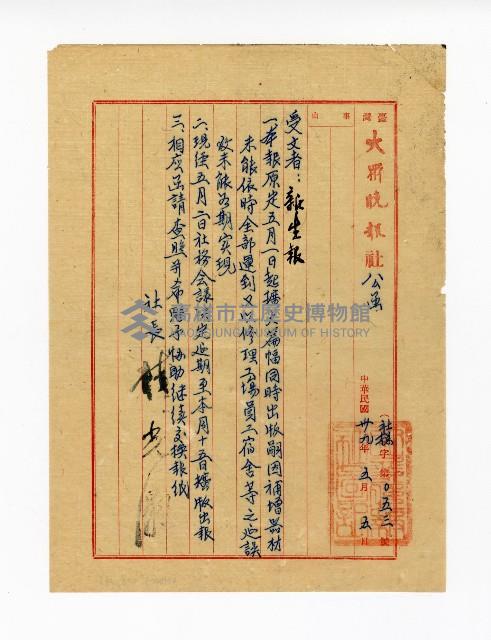 臺灣
大眾晚報社 公函
事由
(社秘字第〇五三號
中華民國卅九年五月五日
受文者：新生報
一、本報原定五月一日起擴大篇幅同時出版嗣因補增器材
未能依時全部運到又以修理工場員工宿舍等之延誤
致未能如期實現
二、現經五月二日社務會議決定延期至本月十五日擴版出報
三、相應函請 查照并希 予協助繼續交換報紙
社長
高雄市立歷史博物館
KAOHSIUNG MUSEUM OF HISTORY